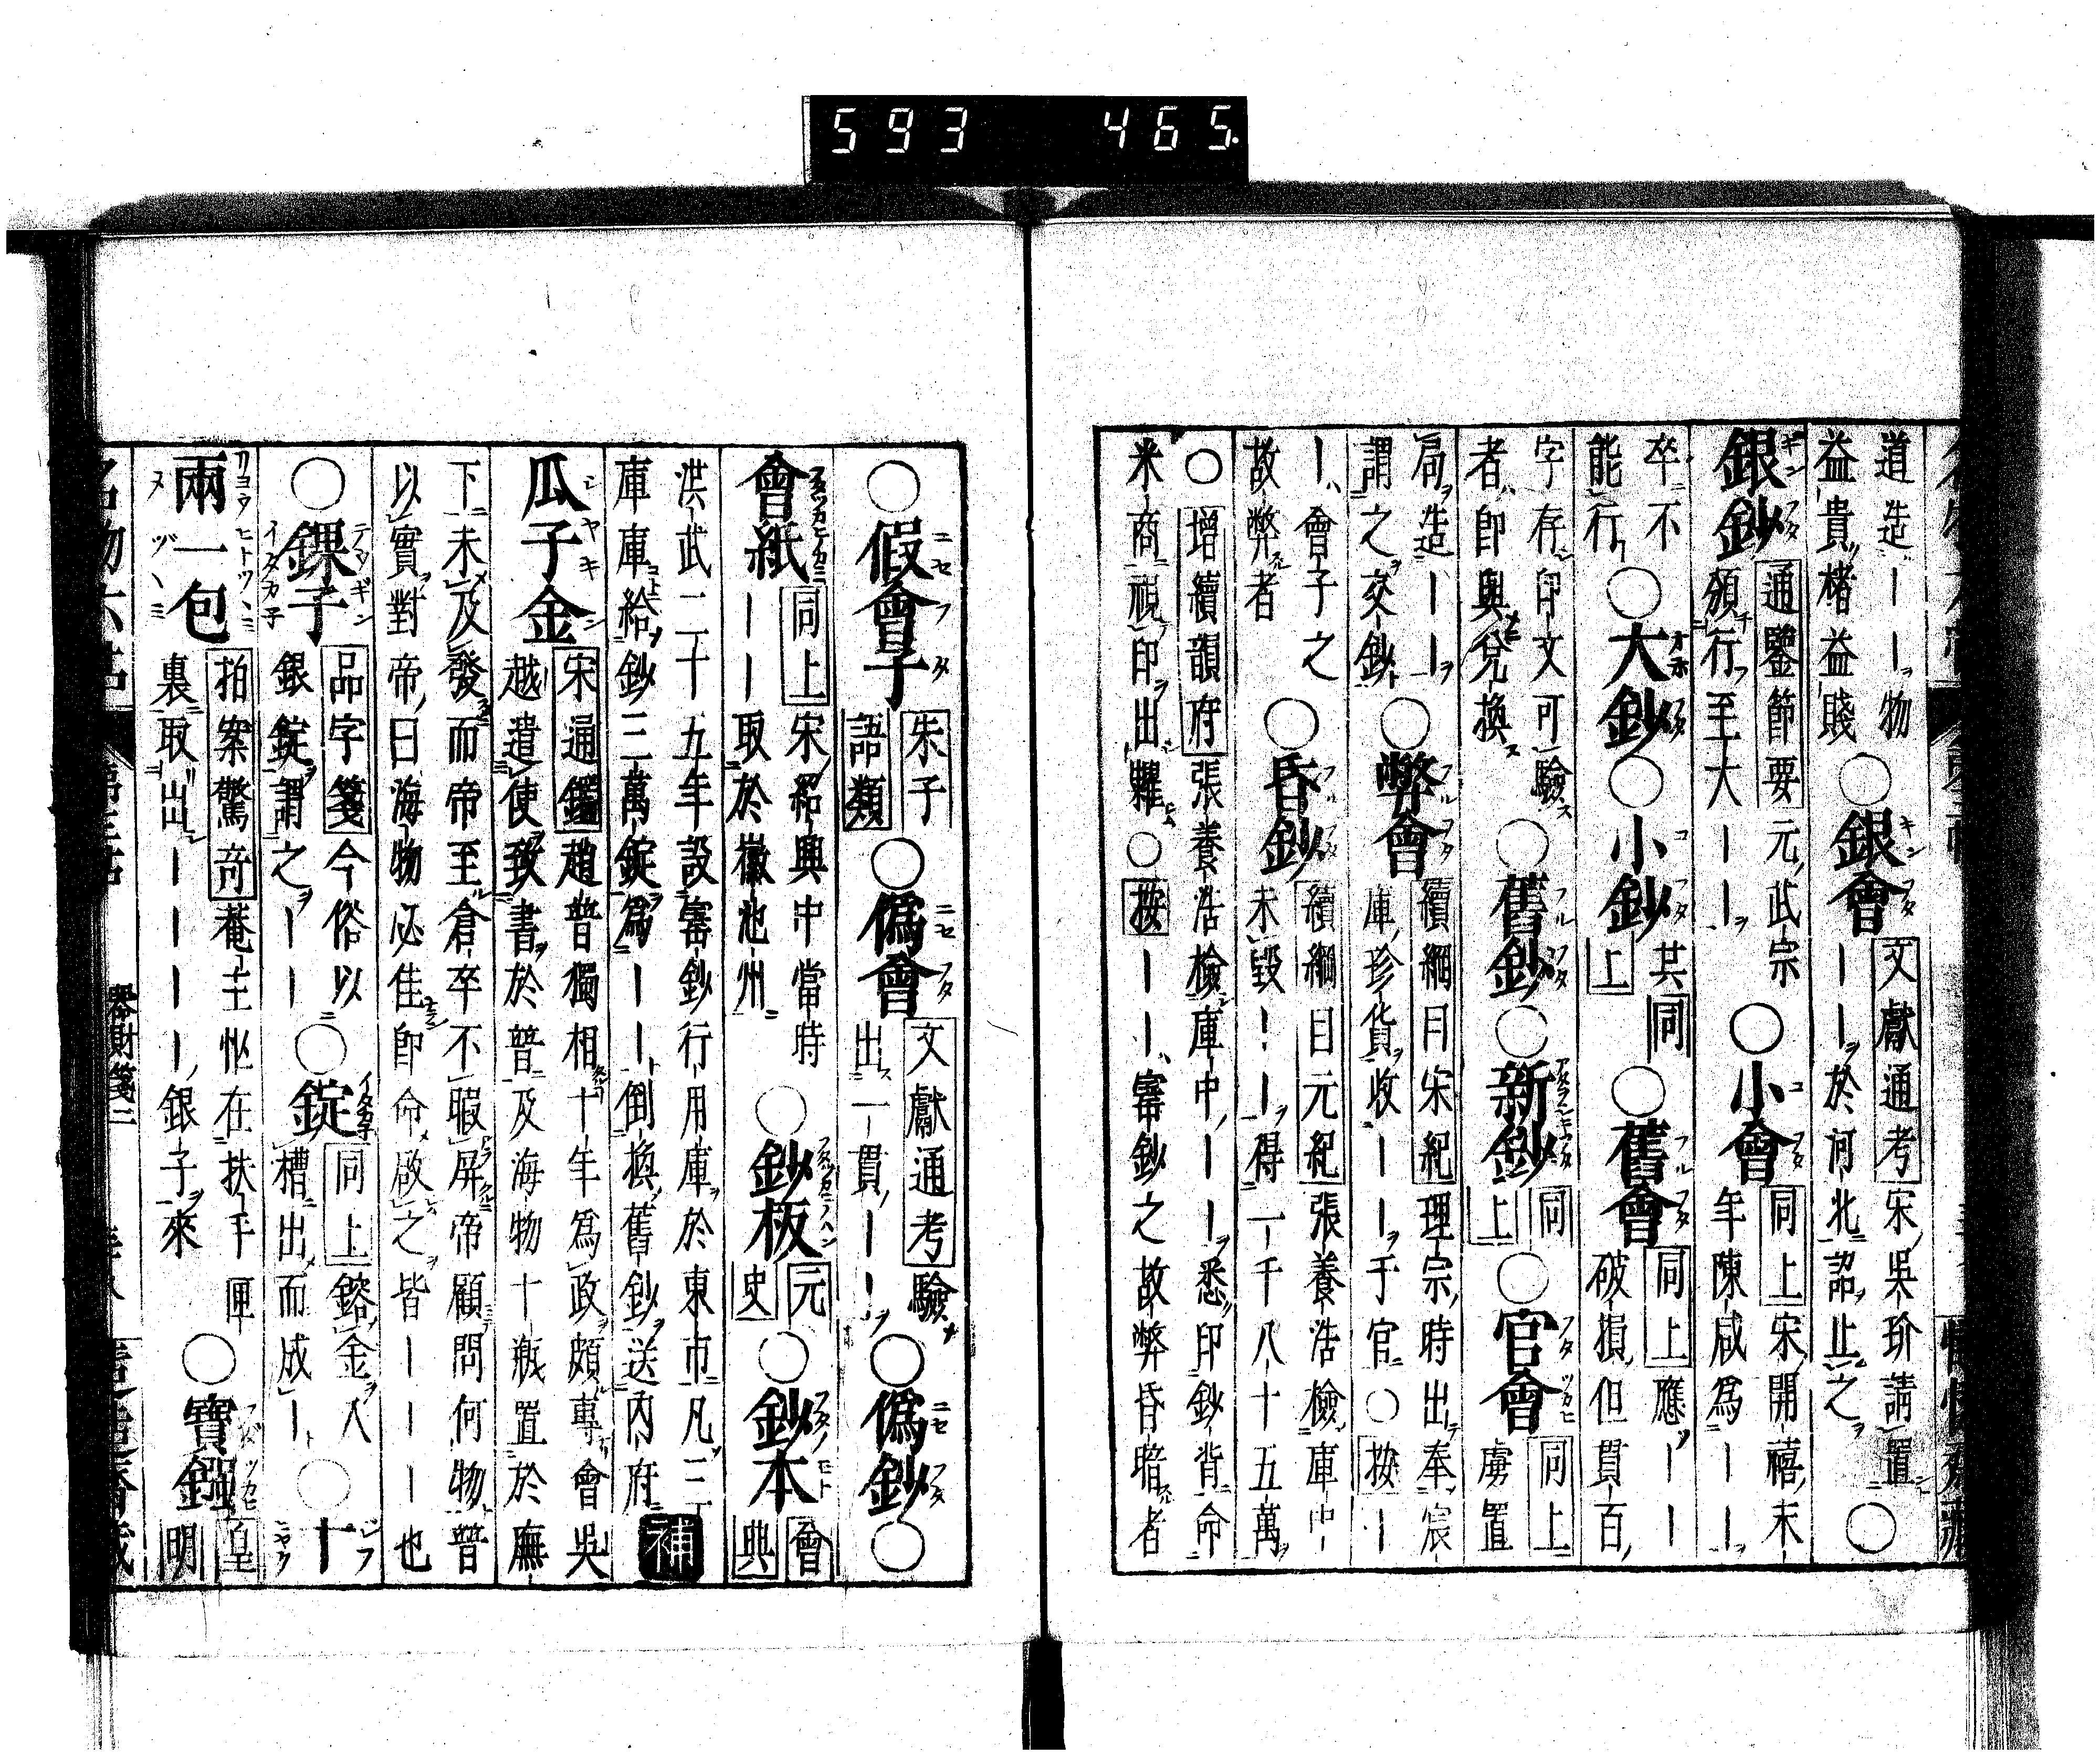 593 465.
道造ーー物
益貴楮益賤
○銀會
文獻通考宋吳玠請置
ーー於河北詔止之○
銀鈔
通鑒節要元武宗
頒行至大ーー
○小會
同上宋開禧末
年陳咸爲ーー
卒不
能行
○大鈔○小鈔
其同
上
○舊會
同上應ーー
破損但貫百
字存印文可驗
者即與兌換
○舊鈔○新鈔
同
上
○官會
同上
虜置
局造ーー
謂之交鈔
○弊會
續綱目宋紀理宗時出奉宸
庫珍貨收ーー于官○按ー
ー會子之
故弊者
○昏鈔
續綱目元紀張養浩檢庫中
未毀ーー得一千八十五萬
○增續韻府張養浩檢庫中ーー悉印鈔背命
米商視印出糶○按ーー寶鈔之故弊昏暗者
○假會子
朱子
語類
○僞會
文獻通考驗
出一貫ーー
○僞鈔○
會紙
同上宋紹興中當時
ーー取於徽池州
○鈔板
元
史
○鈔本
會
典
洪武二十五年設寶鈔行用庫於東市凡三
庫庫給鈔三萬錠爲ーー倒換舊鈔送內府
補
瓜子金
宋通鑑趙普獨相十年爲政頗專會吳
越遣使致書於普及海物十瓶置於廡
下未及發而帝至倉卒不暇屏帝顧問何物普
以實對帝曰海物必佳即命啟之皆ーーー也
○錁子
品字箋今俗以
銀錠謂之ーー
○錠
同上鎔金入
槽出而成ー
○十
兩一包
拍案驚奇菴主㤙在扶手匣
裏取出ーーーー銀子來
○寶鏹
皇
明
器財箋二